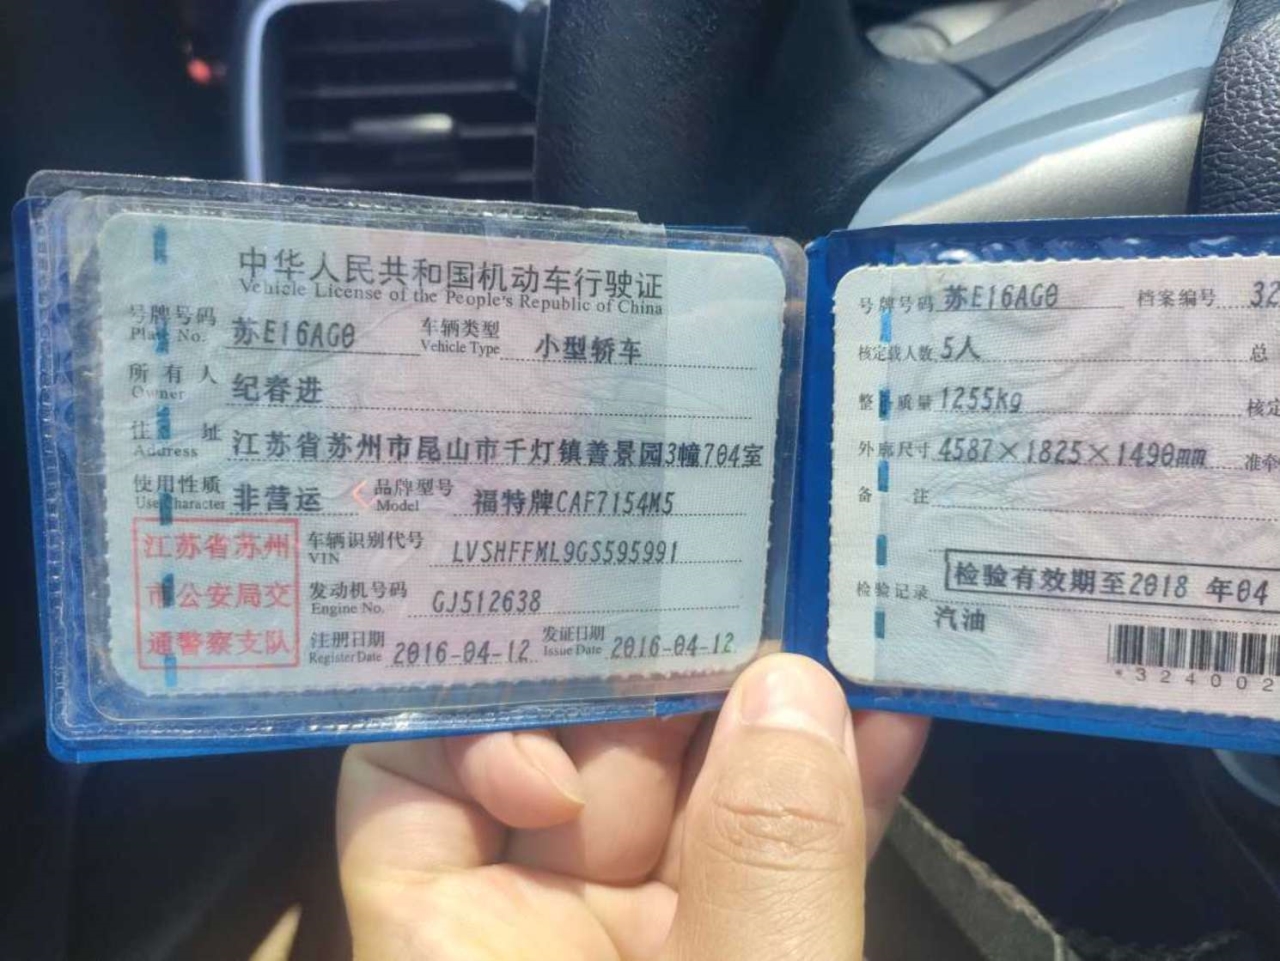 中华人民共和国机动车行驶证
Vehicle License of the People's Republic of China
号牌号码 苏E16AG0 车辆类型 小型轿车
Plate No. Vehicle Type
所有人 纪春进
Owner
住址 江苏省苏州市昆山市千灯镇善景园3幢704室
Address
使用性质 非营运 品牌型号 福特牌CAF7154M5
Use Character Model
江苏省苏州
市公安局交
通警察支队
车辆识别代号 LVSHFFML9GS595991
VIN
发动机号码 GJ512638
Engine No.
注册日期 2016-04-12 发证日期 2016-04-12
Register Date Issue Date
号牌号码 苏E16AG0 档案编号 32
核定载人数 5人 总
整备质量 1255kg 核定
外廓尺寸 4587×1825×1490mm 准牵
备注
检验有效期至2018 年04
检验记录
汽油
*324002